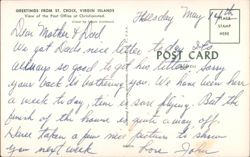 GREETINGS FROM ST. CROIX, VIRGIN ISLANDS
View of the Post Office at Christiansted.
Thursday May 14th
PLACE
STAMP
HERE
Dear Mother & Dad
We got Dad's nice letter to day. It's
POST CARD
always so good to get his letters. Sorry
your back is bothering you. We have been here
a week to day, time is sure flying. But the
finish of the house is quite a way off.
Have taken a few more pictures to show
you next week.
Love John